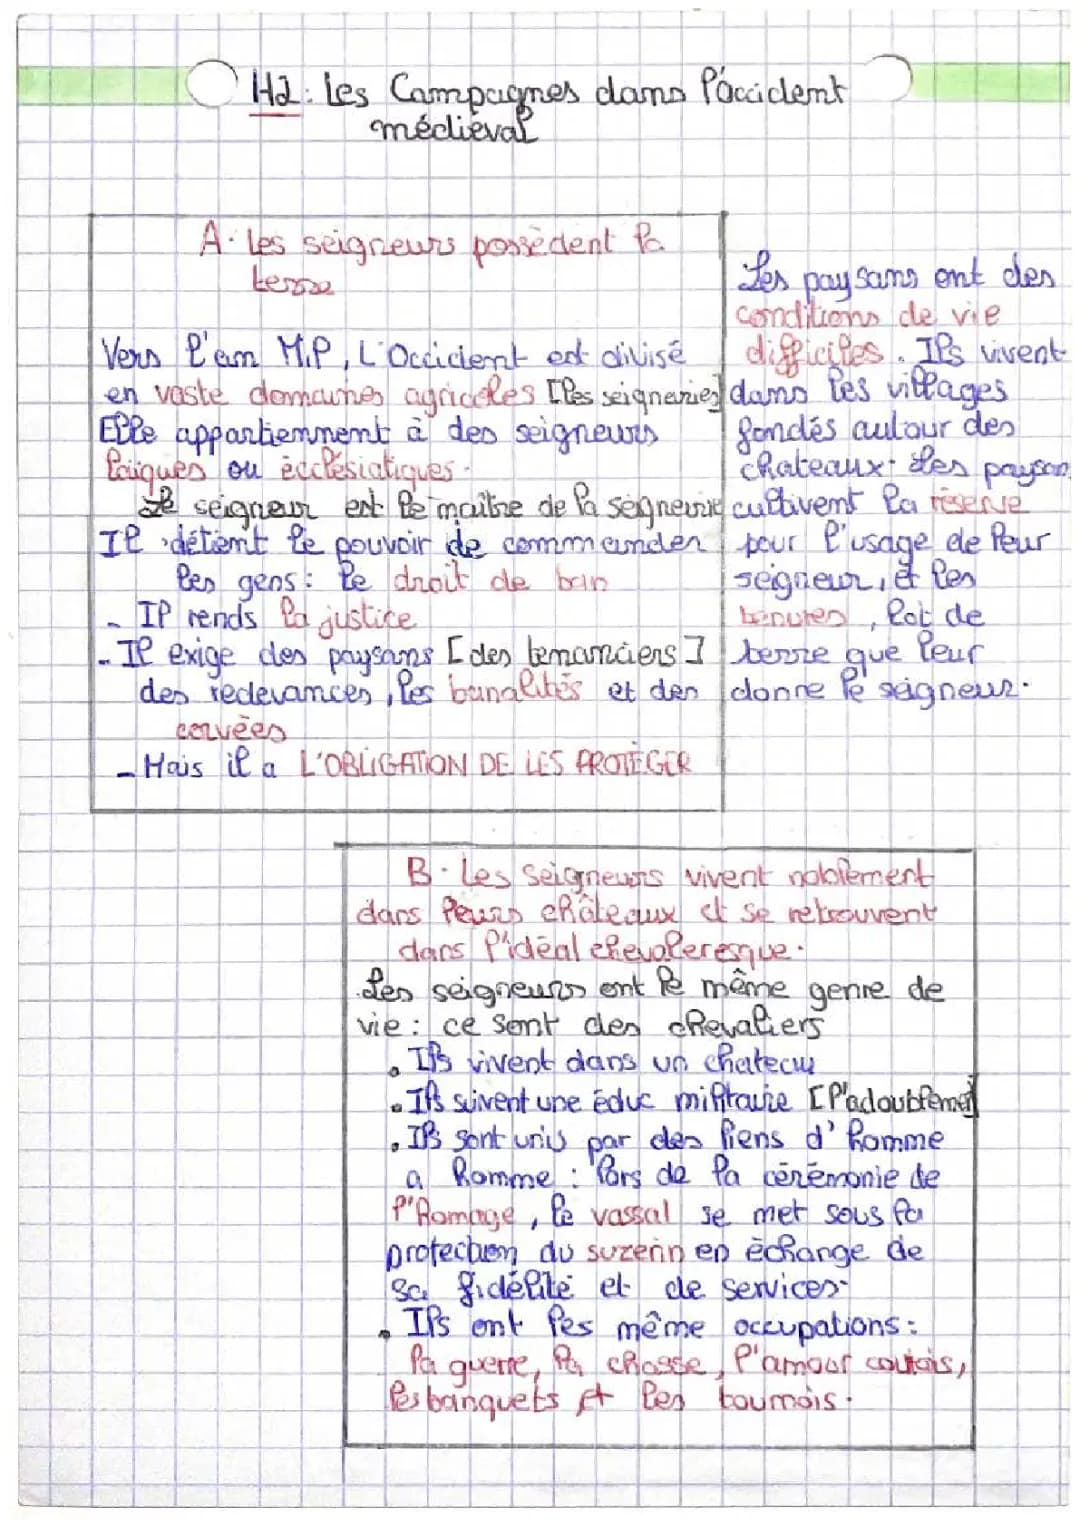 H2: les Campagnes dans l'Occident
médiéval
A. les seigneurs possèdent la
terre
Vers l'an MIP, L'Occident est divisé
en vaste domaines agricoles [les seigneuries]
Elle appartiennent à des seigneurs
laïques ou ecclésiatiques.
Le seigneur est le maître de la seigneurie
Il détient le pouvoir de commander
les gens : le droit de ban
- Il rends la justice
- Il exige des paysans [des tenanciers]
des redevances, les banalités et des
corvées
- Mais il a L'OBLIGATION DE LES PROTÉGER
Les paysans ont des
conditions de vie
difficiles. Ils vivent
dans les villages
fondés autour des
chateaux. Les paysans
cultivent la réserve
pour l'usage de leur
seigneur, et les
tenures, lot de
terre que leur
donne le seigneur.
B. Les Seigneurs vivent noblement
dans leurs châteaux et se retrouvent
dans l'idéal chevaleresque.
Les seigneurs ont le même genre de
vie : ce sont des chevaliers
• Ils vivent dans un chateau
• Ils suivent une éduc militaire [l'adoubement]
• Ils sont unis par des liens d'homme
a homme : lors de la cérémonie de
l'homage, le vassal se met sous la
protection du suzerin en échange de
sa fidélité et de services.
• Ils ont les même occupations :
la guerre, la chasse, l'amour coutois,
les banquets et les tournois.